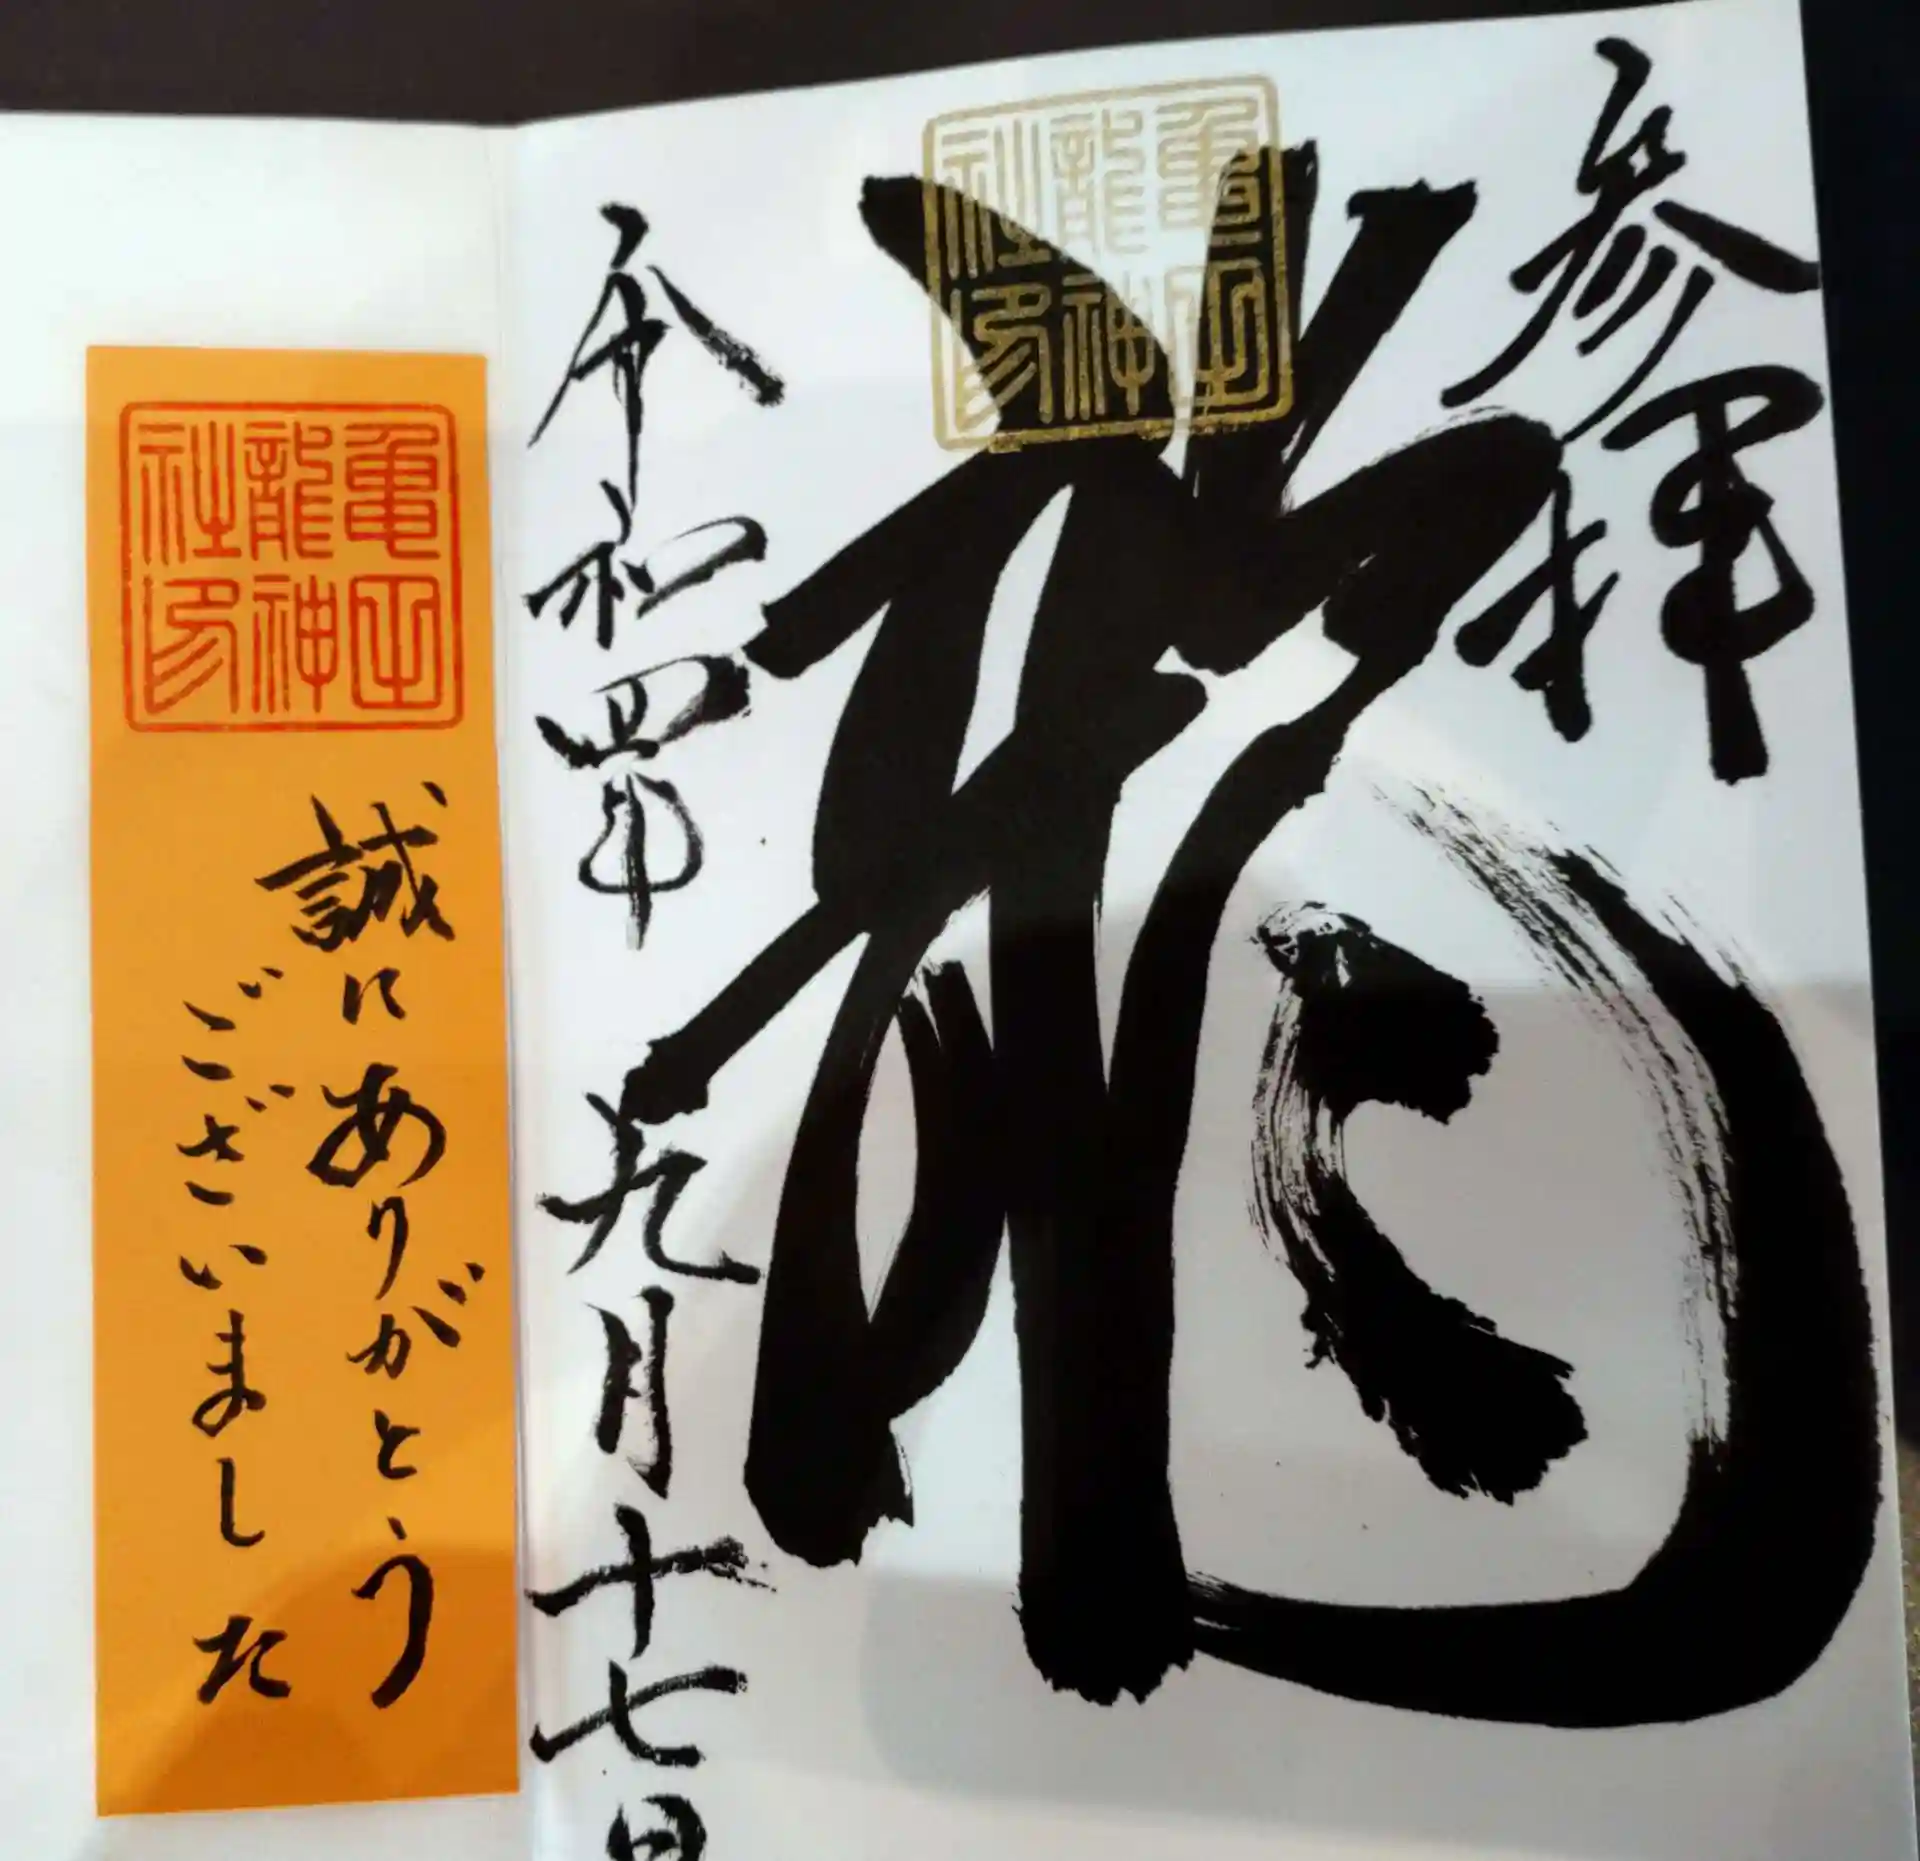 参拝
龍
亀岡
龍神
社印
令和四年九月十七日
亀岡
龍神
社印
誠にありがとう
ございました